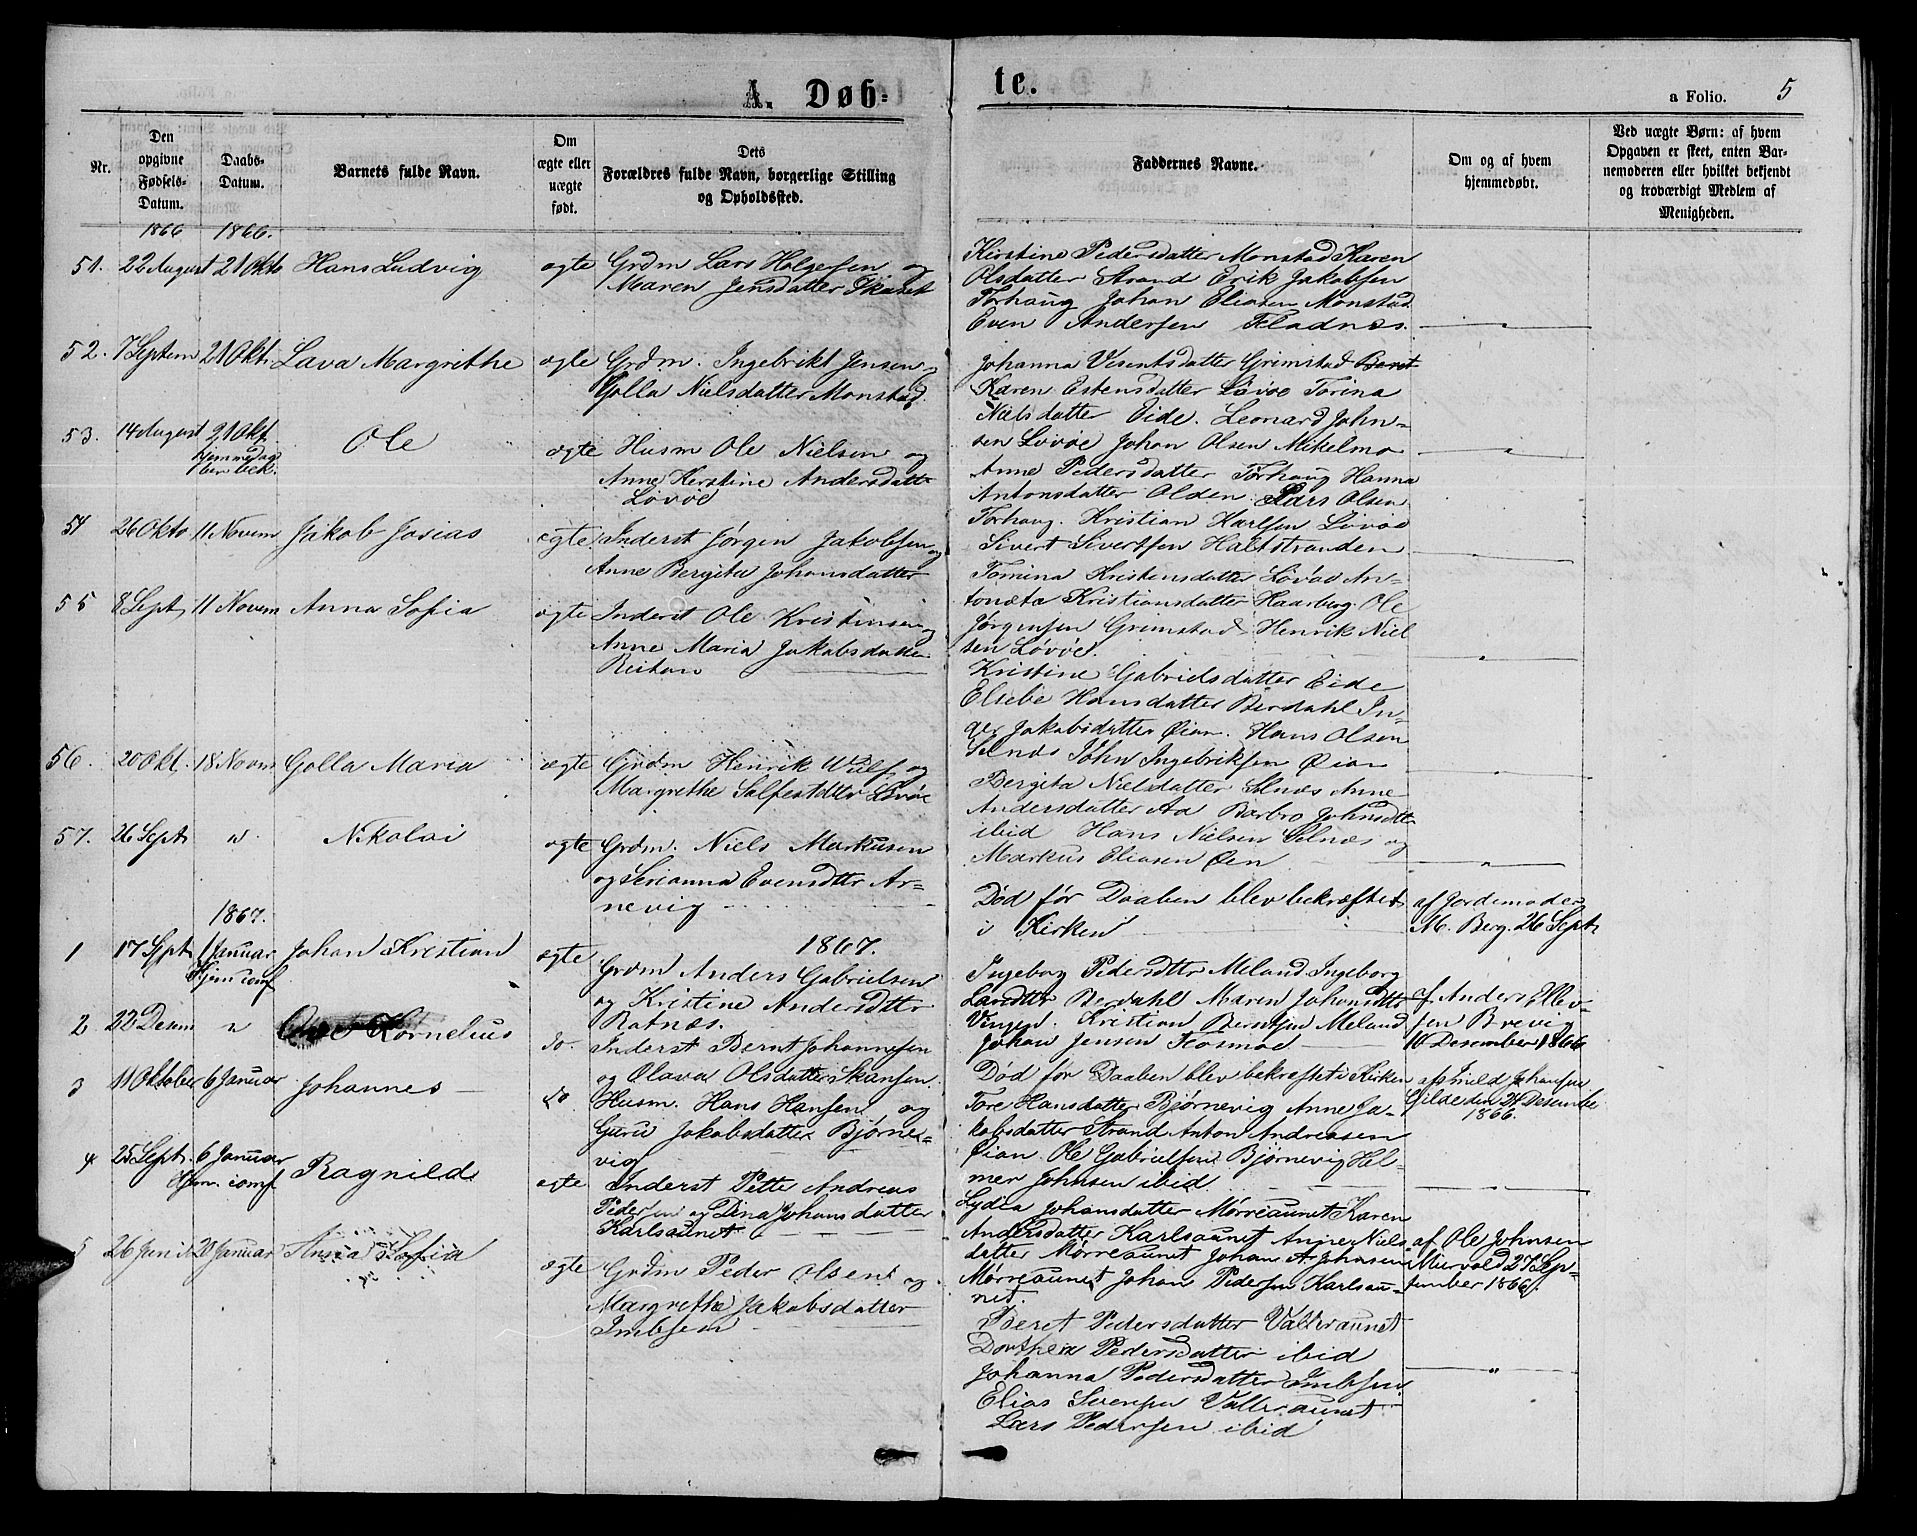 A. Døb-
te.
a Folio. 5
Nr.
Den
opgivne
Fødsels-
Datum.
Daabs-
Datum.
Barnets fulde Navn.
Om
ægte eller
uægte
født.
Dets
Forældres fulde Navn, borgerlige Stilling
og Opholdssted.
Faddernes Navne.
Om og af hvem
hjemmedøbt.
Ved uægte Børn: af hvem
Opgaven er skeet, enten Bar-
nemoderen eller hvilket bekjendt
og troværdigt Medlem af
Menigheden.
1866 1866.
51. 22 August 21 Okto Hans Ludvig ægte Grdm Lars Holgersen og
Maren Jensdatter Skaret
Kirstine Pedersdatter Monstad Karen
Olsdatter Strand Erik Jakobsen
Torhaug Johan Eliasen Monstad
Even Andersen Fladnes.
52. 7 Septem 21 Okt. Lava Margrethe ægte Grdm. Ingebrikt Jensen og
Golla Nielsdatter Monstad.
Johanna Vesentsdatter Grimstad Beret
Karen Estensdatter Lövöe Torina
Nielsdatter Eide. Leonard John-
sen Lovöe Johan Olsen Mikelmo
53. 14 August 21 Okt. Ole ægte Husm Ole Nielsen og
Anne Kerstine Andersdatte
Lövöe
Anne Pedersdatter Torhaug Hanna
Antonsdatter Olden. Lars Olsen
Torhaug. Kristian Karlsen Lövöe
Sivert Sivertsen Haltstranden
54 26 Okto 11 Novem Jakob Josias ægte Inderst Jörgen Jakobsen og
Anne Bergita Johansdatter
Tomina Kristensdatter Lövöe An-
toneta Kristiansdatter Haarberg. Ole
Jörgensen Grimstad Henrik Niel
sen Lövöe.
55 8 Sept, 11 Novem Anna Sofia ægte Inderst Ole Kristinsen og
Anne Maria Jakobsdatter
Reitan
Kristine Gabrielsdatter Eide
Elsebe Hansdatter Berdahl In-
ger Jakobsdatter Øian. Hans Olsen
Selnæs John Ingebriktsen Øian
56. 20 Okt. 18 Novm Golla Maria ægte Grdm Henrik Wulf og
Margrethe Salfestdtter Lövöe
Bergita Nielsdatter Selnæs Anne
Andersdatter Aa Barbro Johnsdtter
ibid Hans Nielsen Selnæs og
Markus Eliasen Øen
57. 26 Sept " Nikolai ægte Grdm. Niels Markusen
og Serianna Evensdtter Ar-
nevig
Död för Daaben blev bekræftet
i Kirken
af Jordemoder
M. Berg. 26 Sept.
1867.
1867.
1 17 Spt. 1 Januar Johan Kristian ægte
Hjem conf
Grdm Anders Gabrielsen
og Kristine Andersdtter
Ratnæs.
Ingeborg Pedersdtter Meland. Ingeborg
Larsdtter Berdahl Maren Johansdtter
Vingen. Kristian Berntsen Meland
Johan Jensen Kosmoe
af Anders Ellev-
sen Brevig
10 Desember 1866
2 22 Desem " Kornelius do. Inderst Bernt Johannesen
og Olava Olsdatter Skansen.
Död för Daaben blev bekræftet i Kirken
3 11 Oktober 6 Januar Johannes do. Husm. Hans Hansen og
Guru Jakobsdatter Björne-
vig
Tore Hansdatter Björnevig Anne Ja-
kobsdatter Strand Anton Andreasen
Øian. Ole Gabrielsen Björnevig Hel-
mer Johnsen ibid.
Gilde den 24 Desembe
1866.
4 25 Sept. 6 Januar Ragnild ægte Inderst Petter Andreas
Hjem. conf
Pedersen og Dina Johansdatter
Karlsaunet
Lydia Johansdatter Mørreaunet Karen
Andersdatter Karlsaunet Anne Niels-
datter Mørreaunet Johan A. Johnsen
Mørreaunet Johan Pedersen Karlsau-
net.
af Ole Johnsen
27 Sep-
tember 1866.
5 26 Juni 20 Januar Anna Sofia ægte Grdm Peder Olsen og
Margrethe Jakobsdatter
Imbsen
Beret Pedersdatter Valleraunet
Dorthea Pedersdatter ibid
Johanna Pedersdatter Imbsen
Elias Seversen Valleraunet
Lars Pedersen ibid